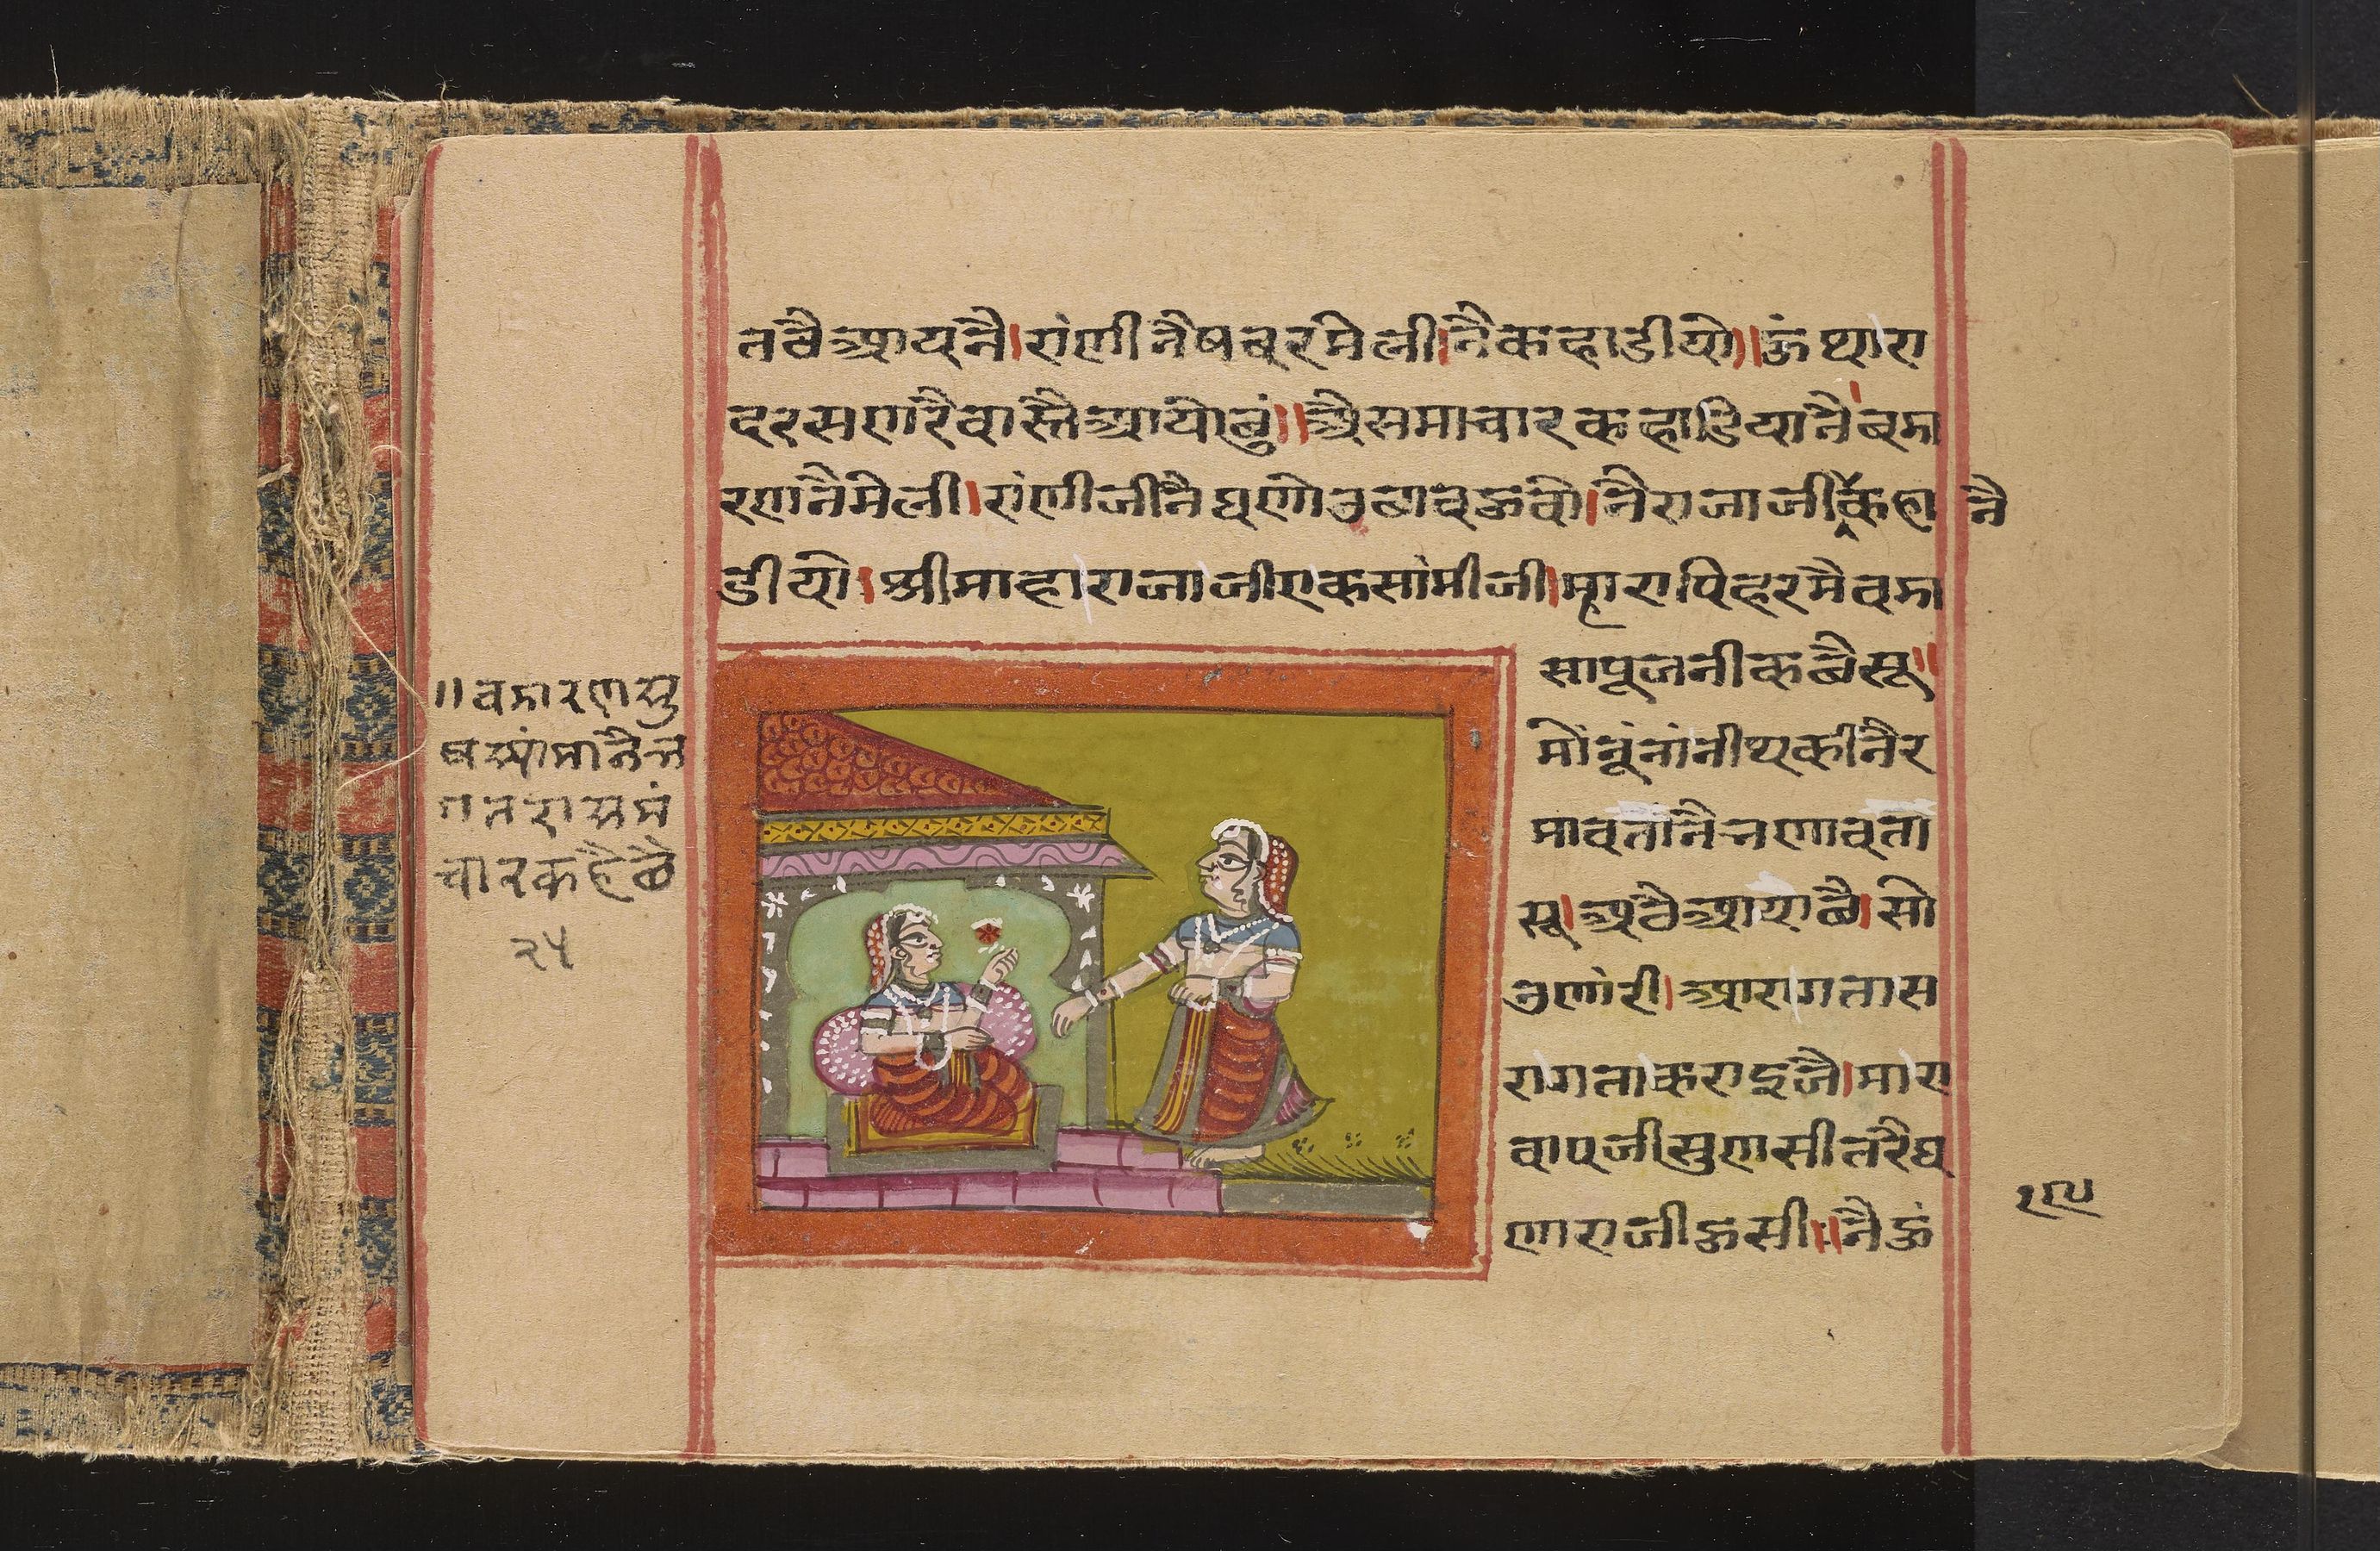 तवै आय नै । रांणी नै षबर मेली । नै कहाडीयो ।। ऊं थारा
दरसण रै वास्तै आयो छुं ।। अै समाचार कहाडिया नै । बमा
रण नै मेली । रांणीजी नै घणो उछाव ऊवो । नै राजाजी कहा नै
डीयो । श्री माहाराजाजी एक सांमीजी । म्हारा पिहर मै वमा
सा पूजनीक छै सू ।।
मों नूं नांनी थकी नै र
मावतां नै चणावतां
सू । अवै आयो छै । सो
उणां री । आरागतास
रागता करा इजै । मारा
वापजी सुणसी तरै घ
णा राजी ऊसी ।। नै ऊं
।। वमारण मु
ष आंमा नै ज
गतरा समं
चार कहै छै
२५